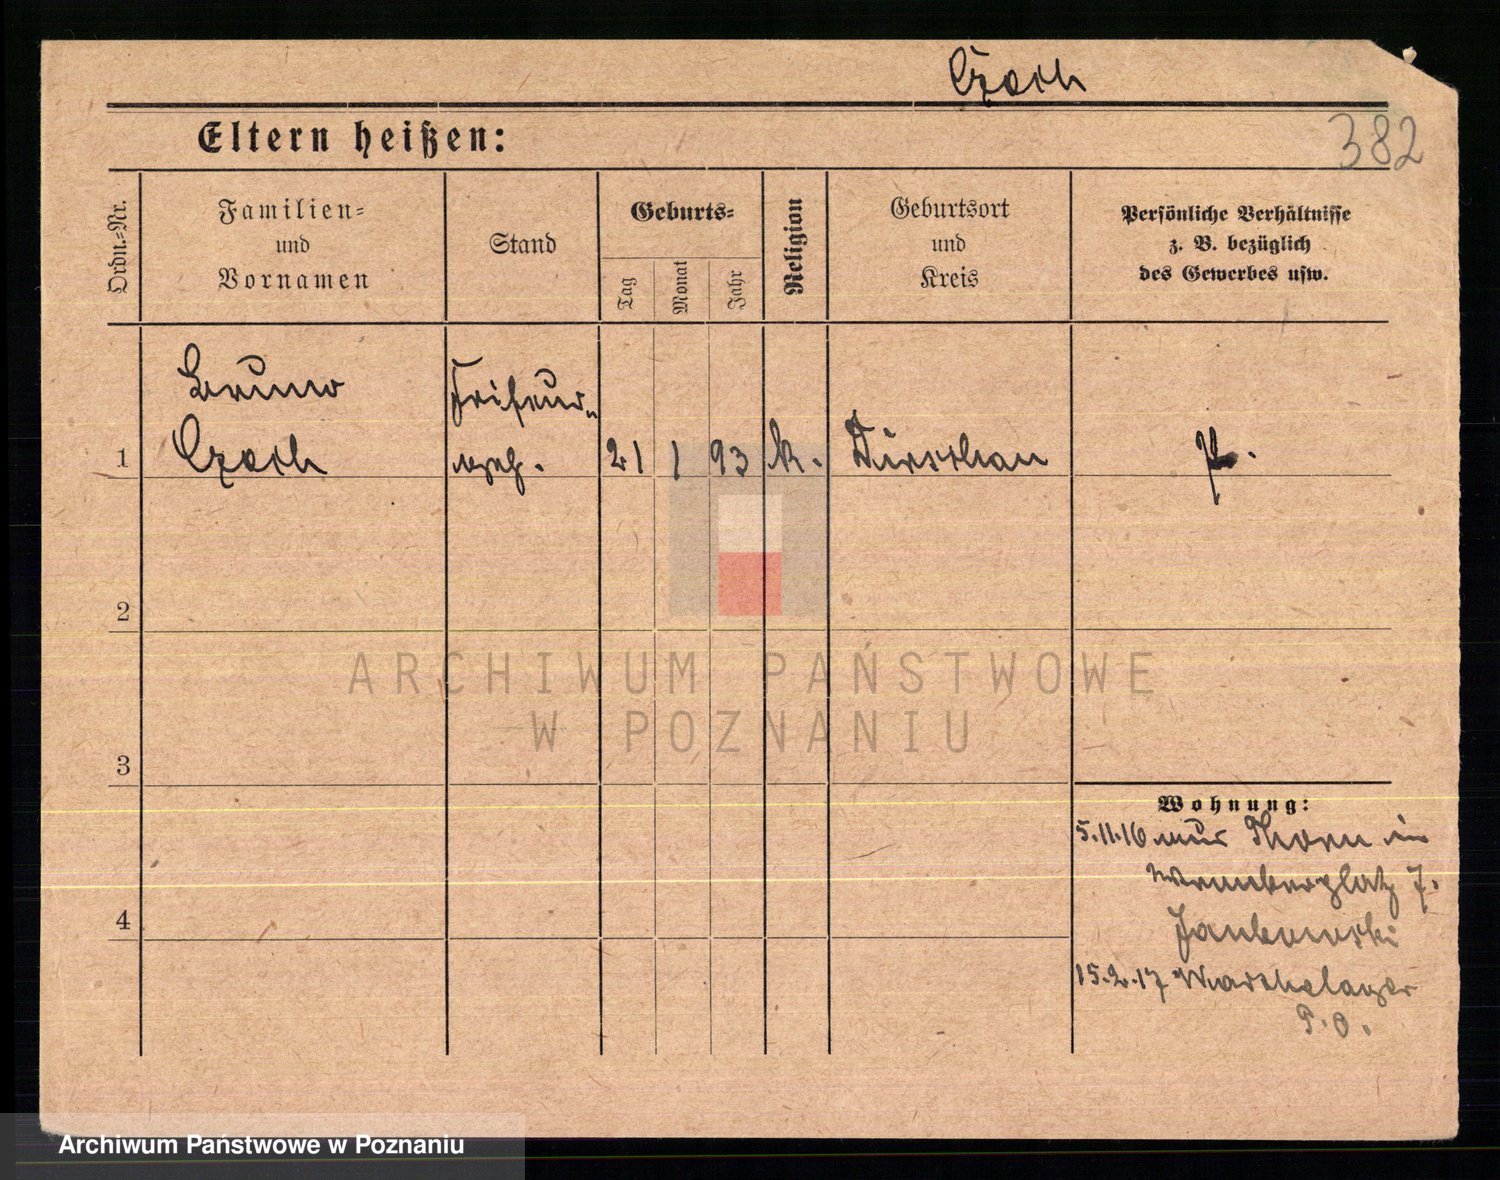 Czoch
382
Eltern heißen:
Ordn.-Nr.
Familien-
und
Vornamen
Stand
Geburts-
Tag
Monat
Jahr
Religion
Geburtsort
und
Kreis
Persönliche Verhältnisse
z. B. bezüglich
des Gewerbes usw.
Bruno
Friseur-
1
Czoch
21
1
93
k.
Dirschau
2
3
4
Wohnung:
5.11.16 Thorn in
7.
Jankowski
15.2.17
P.O.
ARCHIWUM PAŃSTWOWE
W POZNANIU
Archiwum Państwowe w Poznaniu